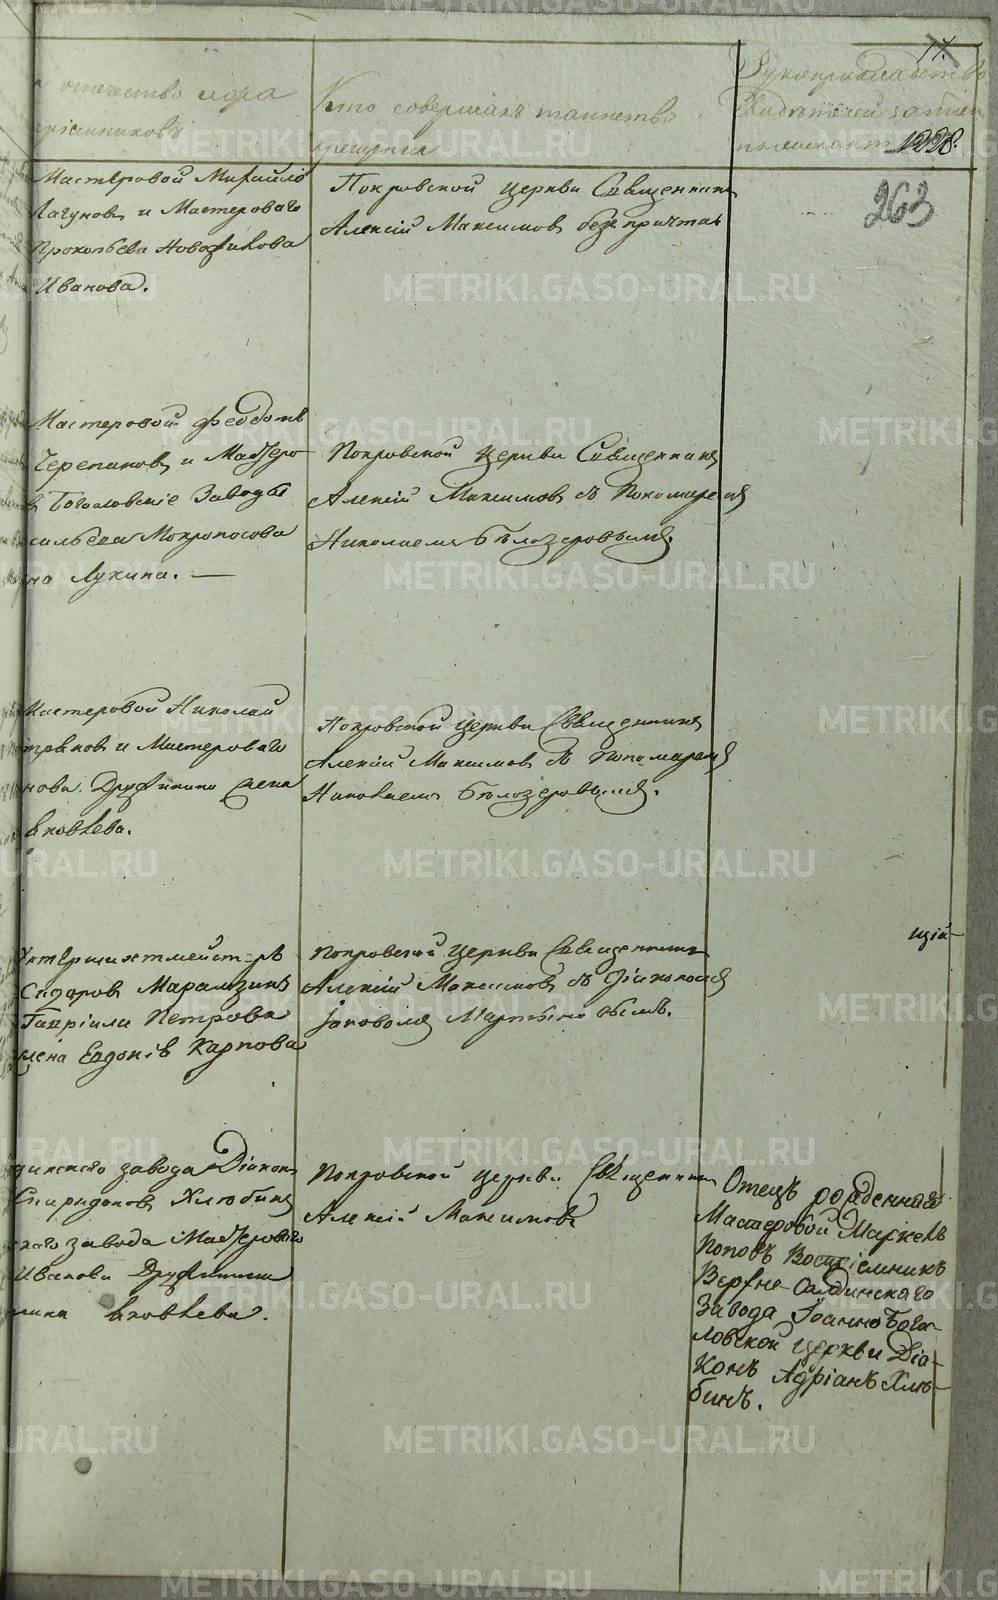 17.
отчество и фа
Кто совершалъ таинство
крещенія
Рукоприкладство
свидѣтелей записи
1228.
263
Мастеровой Михайло
Лагуновъ и Мастероваго
Прокопьева Новожилова
Иванова.
Покровской церкви Священникъ
Алексій Максимовъ безъ причта
Мастеровой Феодотъ
Черепановъ и Мастеро
въ Богословскіе Заводы
сильева Мокроносова
на Лукина. —
Покровской церкви Священникъ
Алексій Максимовъ съ Пономаремъ
Николаемъ Бѣлозеровымъ.
Мастеровой Николай
и Мастероваго
нова Дружинина
Яковлева.
Покровской церкви Священникъ
Алексій Максимовъ съ Пономаремъ
Николаемъ Бѣлозеровымъ.
Унтершихтмейстеръ
Сидоровъ Марамзинъ
Гавріила Петрова
Евдокія Карпова
Покровской церкви Священникъ
Алексій Максимовъ съ Діакономъ
Іаковомъ Мартыновымъ.
цій
динскаго завода Діаконъ
Спиридоновъ Хлюбинъ
скаго завода Мастероваго
Иванова Дружинина
Яковлева.
Покровской церкви Священникъ
Алексій Максимовъ
Отецъ рожденнаго
Мастеровой Маркелъ
Поповъ Воспріемникъ
Верхне-Салдинскаго
Завода Іоанно Бого-
ловской церкви Діа-
конъ Адріанъ Хлю-
бинъ.
METRIKI.GASO-URAL.RU